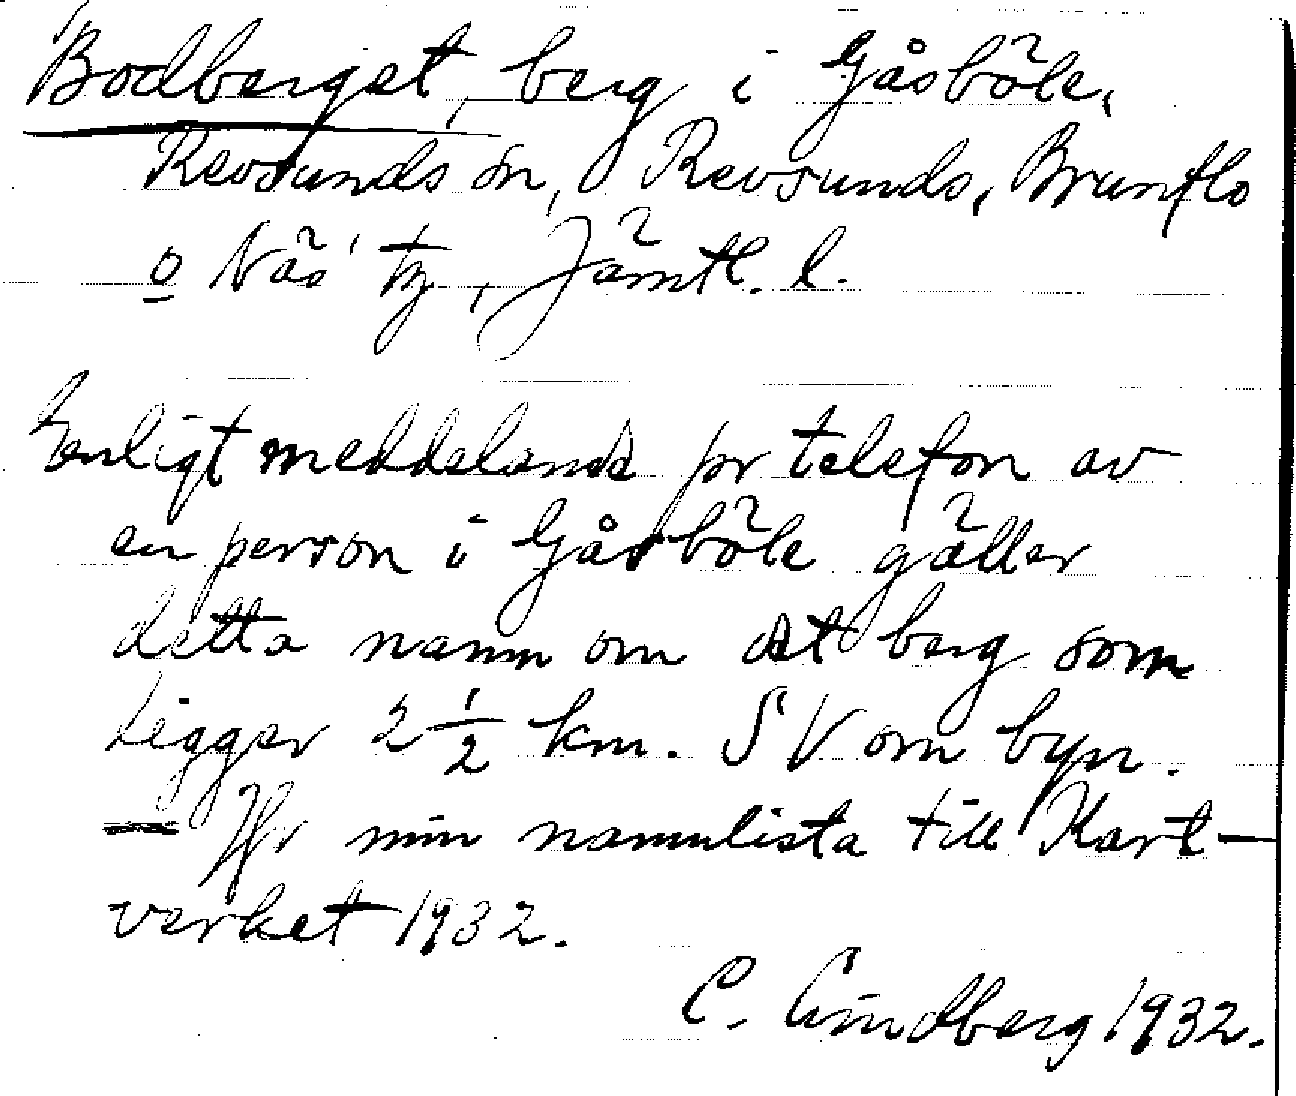 Bodberget, berg i Gåsböle,
Revsunds sn, Revsunds, Brunflo
o Näs' tg, Jämtl. l.
Enligt meddelande pr telefon av
en person i Gåsböle gäller
detta namn om det berg som
ligger 2 1/2 km. SV om byn.
— Jfr min namnlista till Kart-
verket 1932.
C. Lindberg 1932.